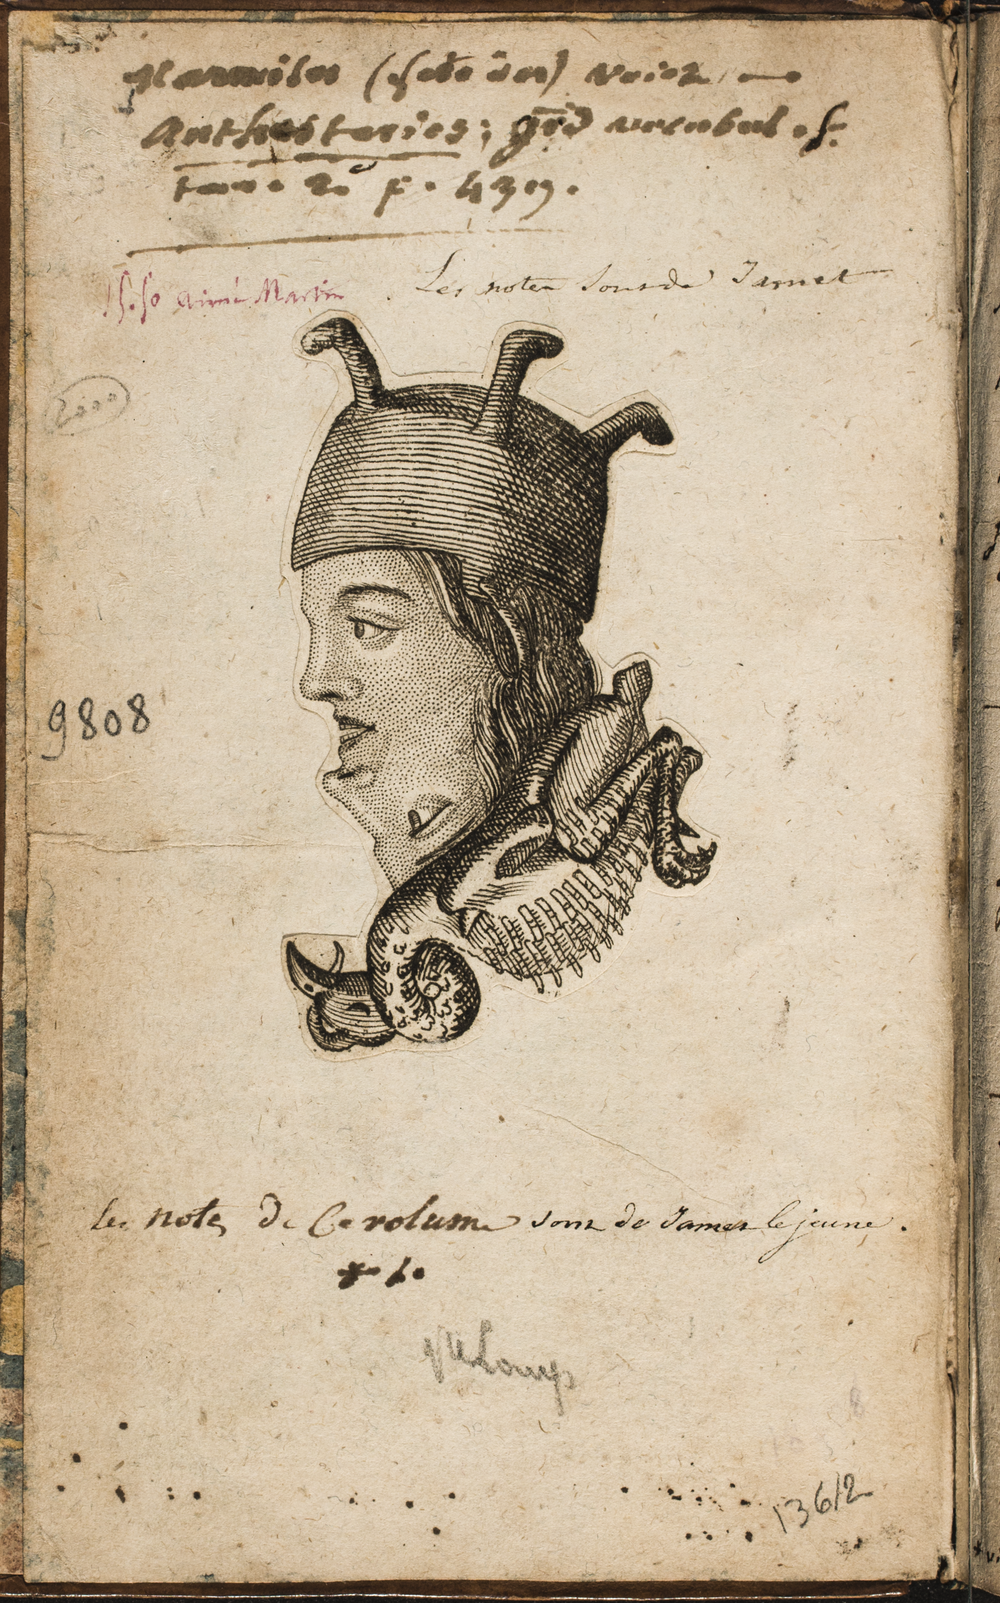 Marmites (fête des) voiez
Anthestéries; grd vocabul. fr.
tom. 2. p. 439.
Aimé Martin
Les notes sont de Jamet
2000
9808
les notes de Ce volume sont de Jamet le jeune.
13612